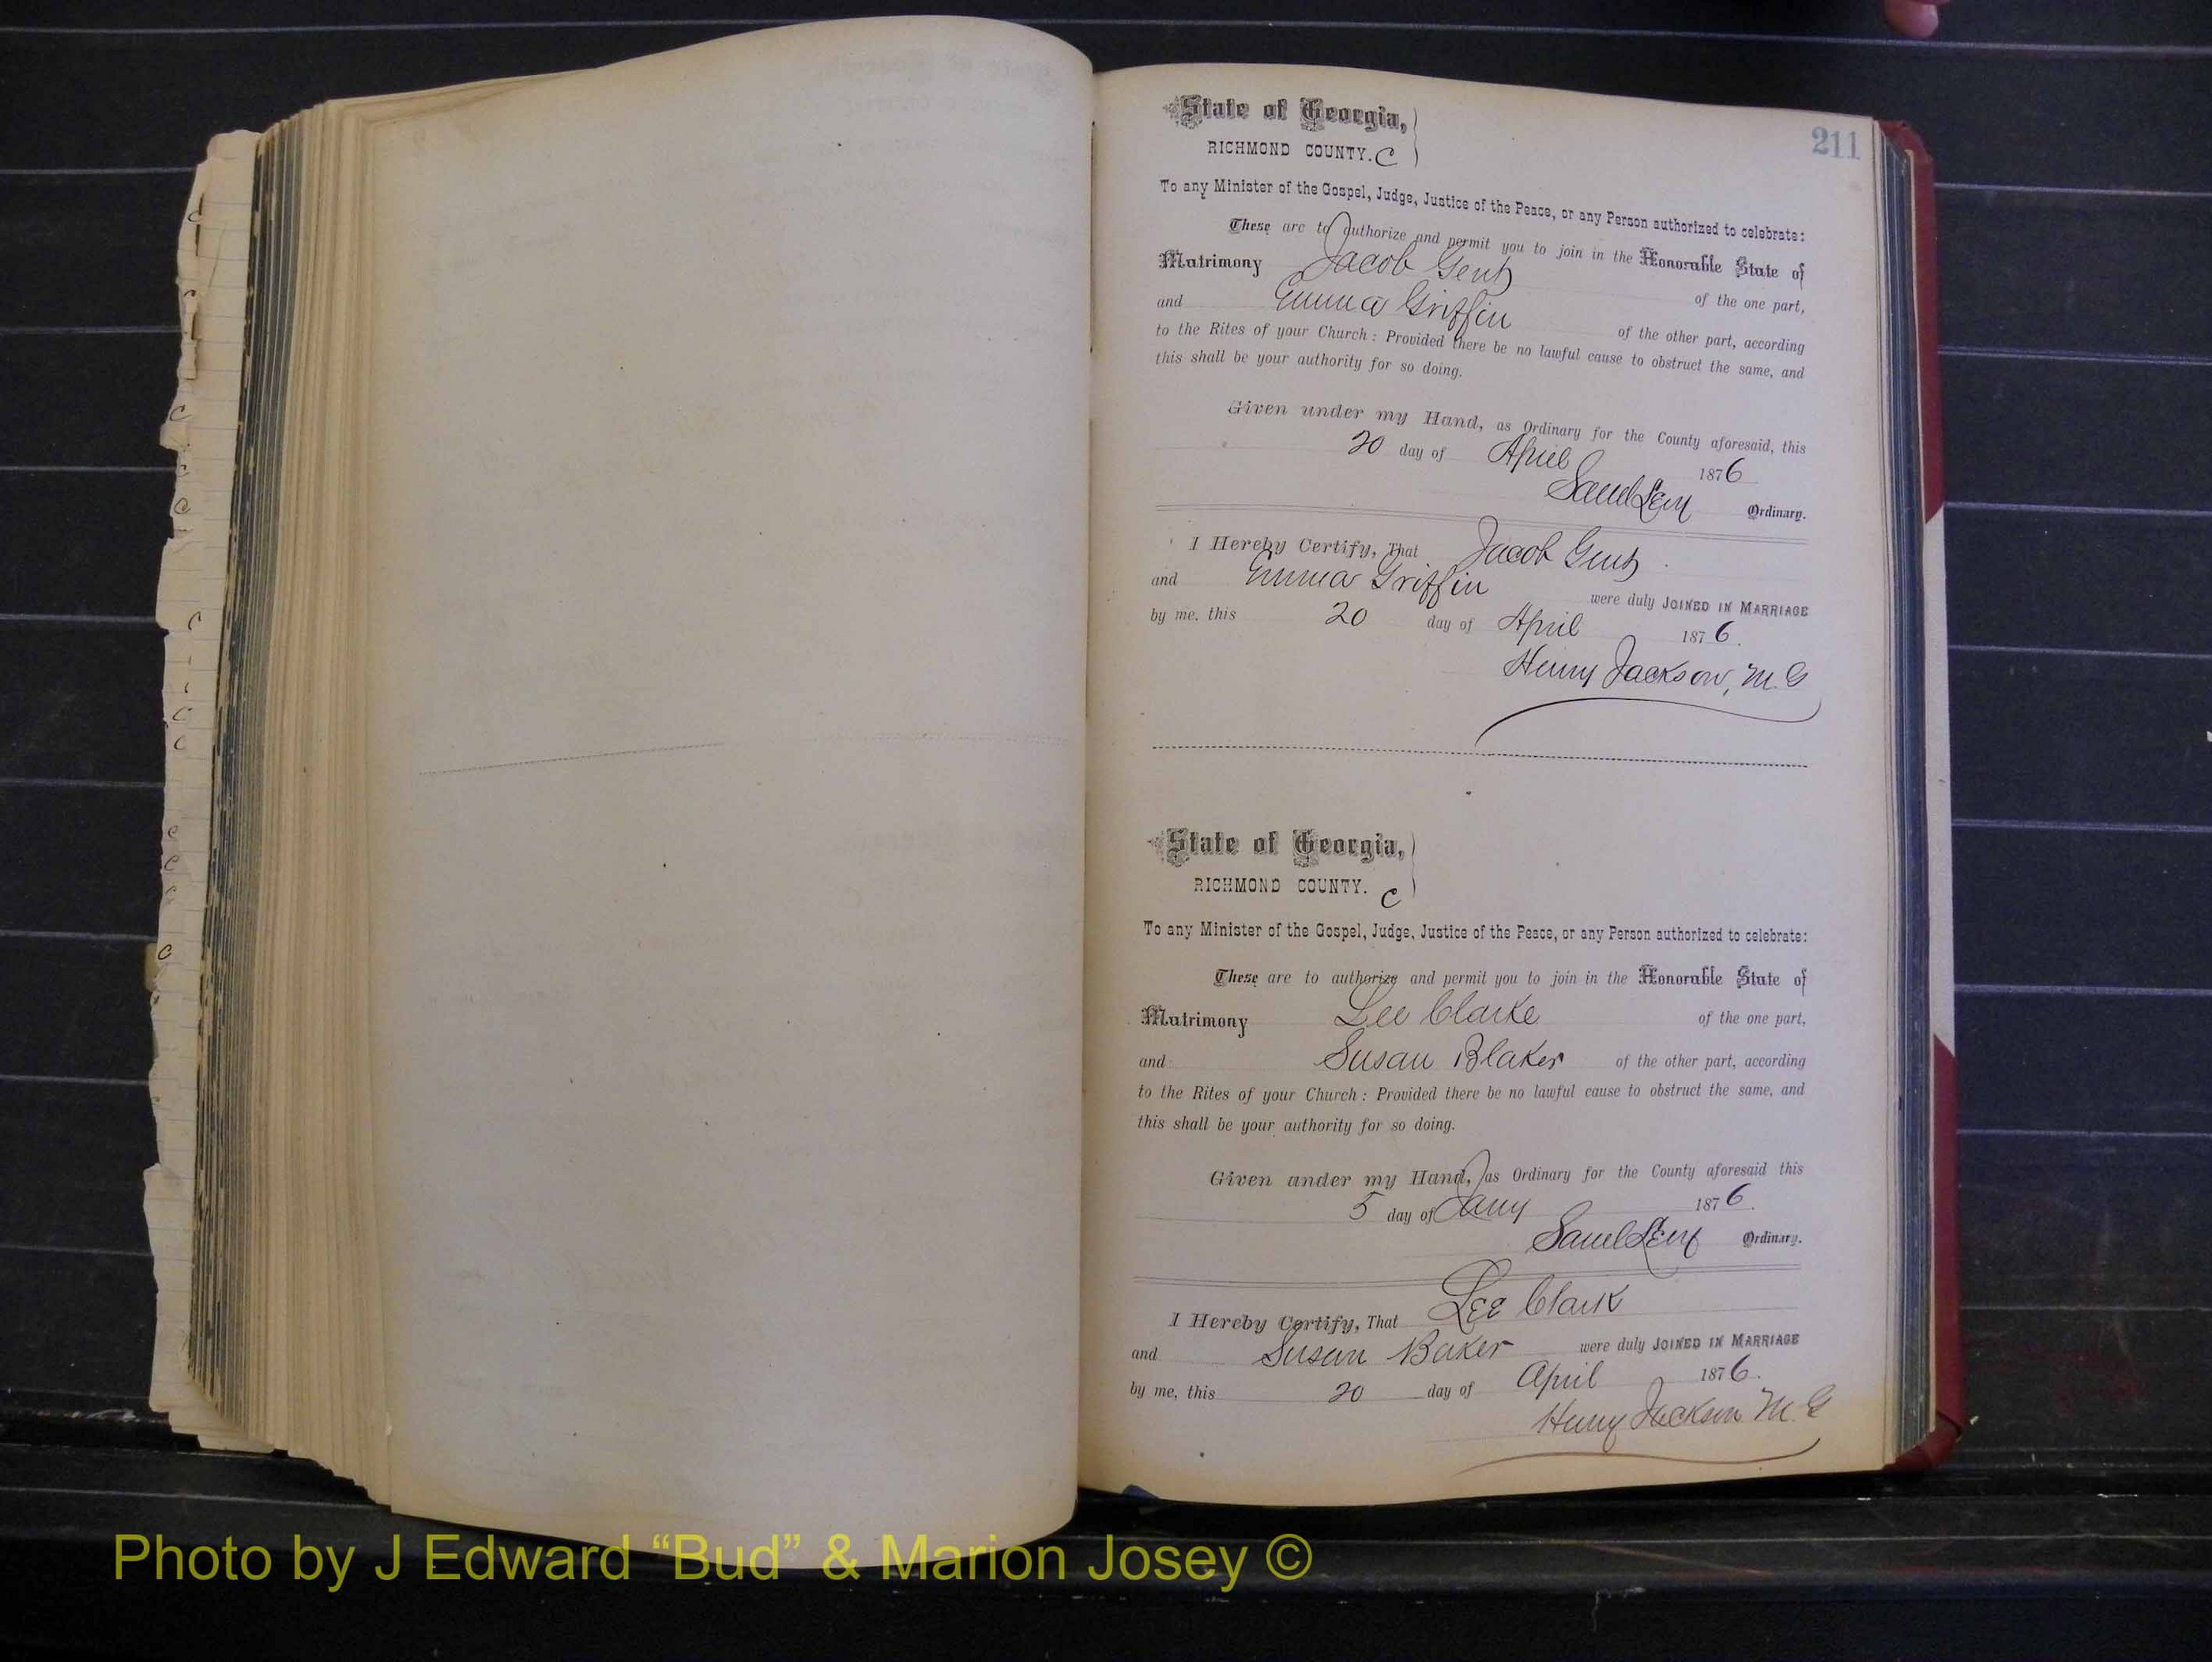 211
State of Georgia,
RICHMOND COUNTY. C
To any Minister of the Gospel, Judge, Justice of the Peace, or any Person authorized to celebrate:
These are to authorize and permit you to join in the Honorable State of
Matrimony Jacob of the one part,
and Emma Griffin of the other part, according
to the Rites of your Church: Provided there be no lawful cause to obstruct the same, and
this shall be your authority for so doing.
Given under my Hand, as Ordinary for the County aforesaid, this
20 day of April 1876
Saml Levy Ordinary.
I Hereby Certify, That Jacob
and Emma Griffin were duly JOINED IN MARRIAGE
by me, this 20 day of April 1876.
Henry Jackson, M.G
State of Georgia,
RICHMOND COUNTY. C
To any Minister of the Gospel, Judge, Justice of the Peace, or any Person authorized to celebrate:
These are to authorize and permit you to join in the Honorable State of
Matrimony Lee Clarke of the one part,
and Susan Blaker of the other part, according
to the Rites of your Church: Provided there be no lawful cause to obstruct the same, and
this shall be your authority for so doing.
Given under my Hand, as Ordinary for the County aforesaid this
5 day of Jany 1876.
Saml Levy Ordinary.
I Hereby Certify, That Lee Clark
and Susan Baker were duly JOINED IN MARRIAGE
by me, this 20 day of April 1876.
Henry Jackson M.G
Photo by J Edward “Bud” & Marion Josey ©